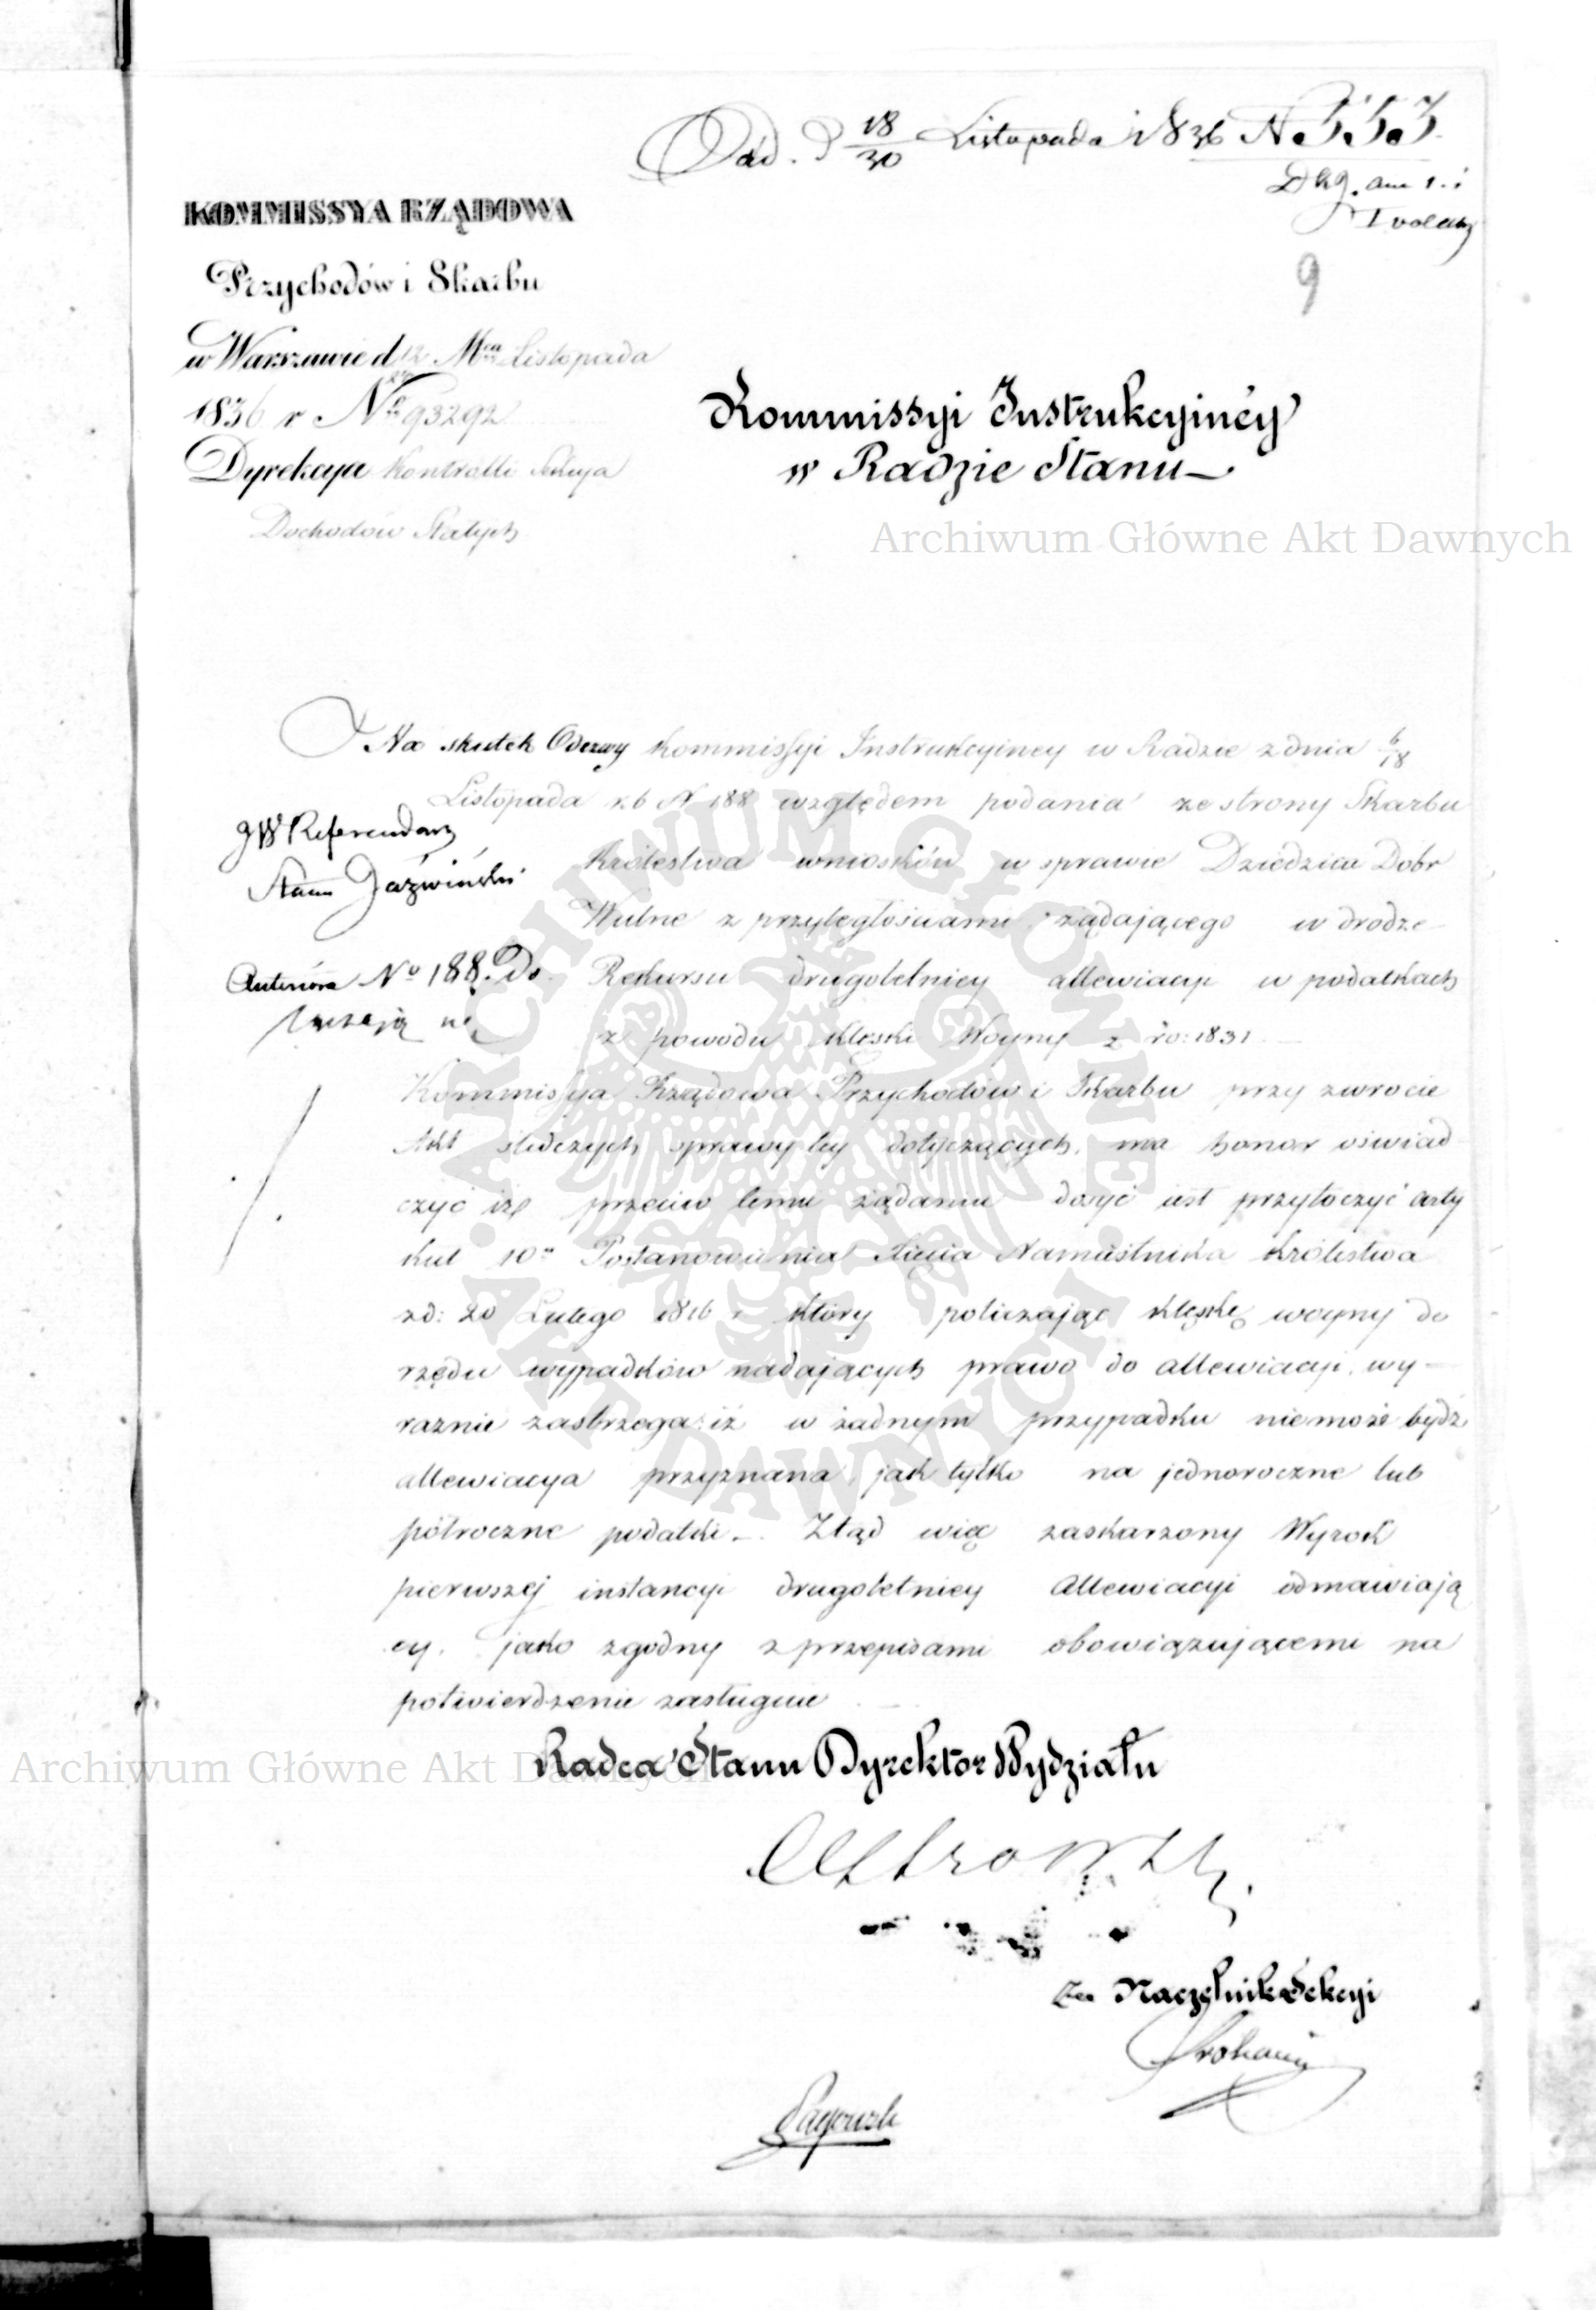 Odd. d 18/30 Listopada 1836 N. 553
9
KOMMISSYA RZĄDOWA
Przychodów i Skarbu
w Warszawie d 12 Mca Listopada
1836 r No 93292
Dyrekcya Kontrolli Sekcya
Dochodów Stałych
Kommissyi Instrukcyiney
w Radzie Stanu
Archiwum Główne Akt Dawnych
Na skutek Odezwy Kommissyi Instrukcyiney w Radzie z dnia 6/18
Listopada r.b N 188 względem podania ze strony Skarbu
JW Referendarz
Stanu Jaźwiński
Królestwa wniosków w sprawie Dziedzica Dobr
z przyległościami żądającego w drodze
Anteriora No 188. Do
Rekursu drugoletniey allewiacyi w podatkach
z powodu klęski Woyny z ro: 1831
Kommissya Rządowa Przychodów i Skarbu przy zwrocie
Akt śledczych sprawy tey dotyczących, ma honor oświad
czyć iże przeciw temu żądaniu dosyć iest przytoczyć arty
kuł 10n Postanowienia Xięcia Namiestnika Królestwa
z d: 20 Lutego 1816 r który policzając klęskę woyny do
rzędu wypadków nadających prawo do allewiacyi, wy-
raznie zastrzega: iż w żadnym przypadku nie może bydź
allewiacya przyznana, jak tylko na jednoroczne lub
półroczne podatki. Ztąd więc zaskarzony Wyrok
pierwszej instancyi drugoletniey Allewiacyi odmawiają
cy, jako zgodny z przepisami obowiązującemi na
potwierdzenie zasługuie
Radca Stanu Dyrektor Wydziału
Archiwum Główne Akt Dawnych
za Naczelnik Sekcyi
ARCHIWUM GŁÓWNE AKT DAWNYCH